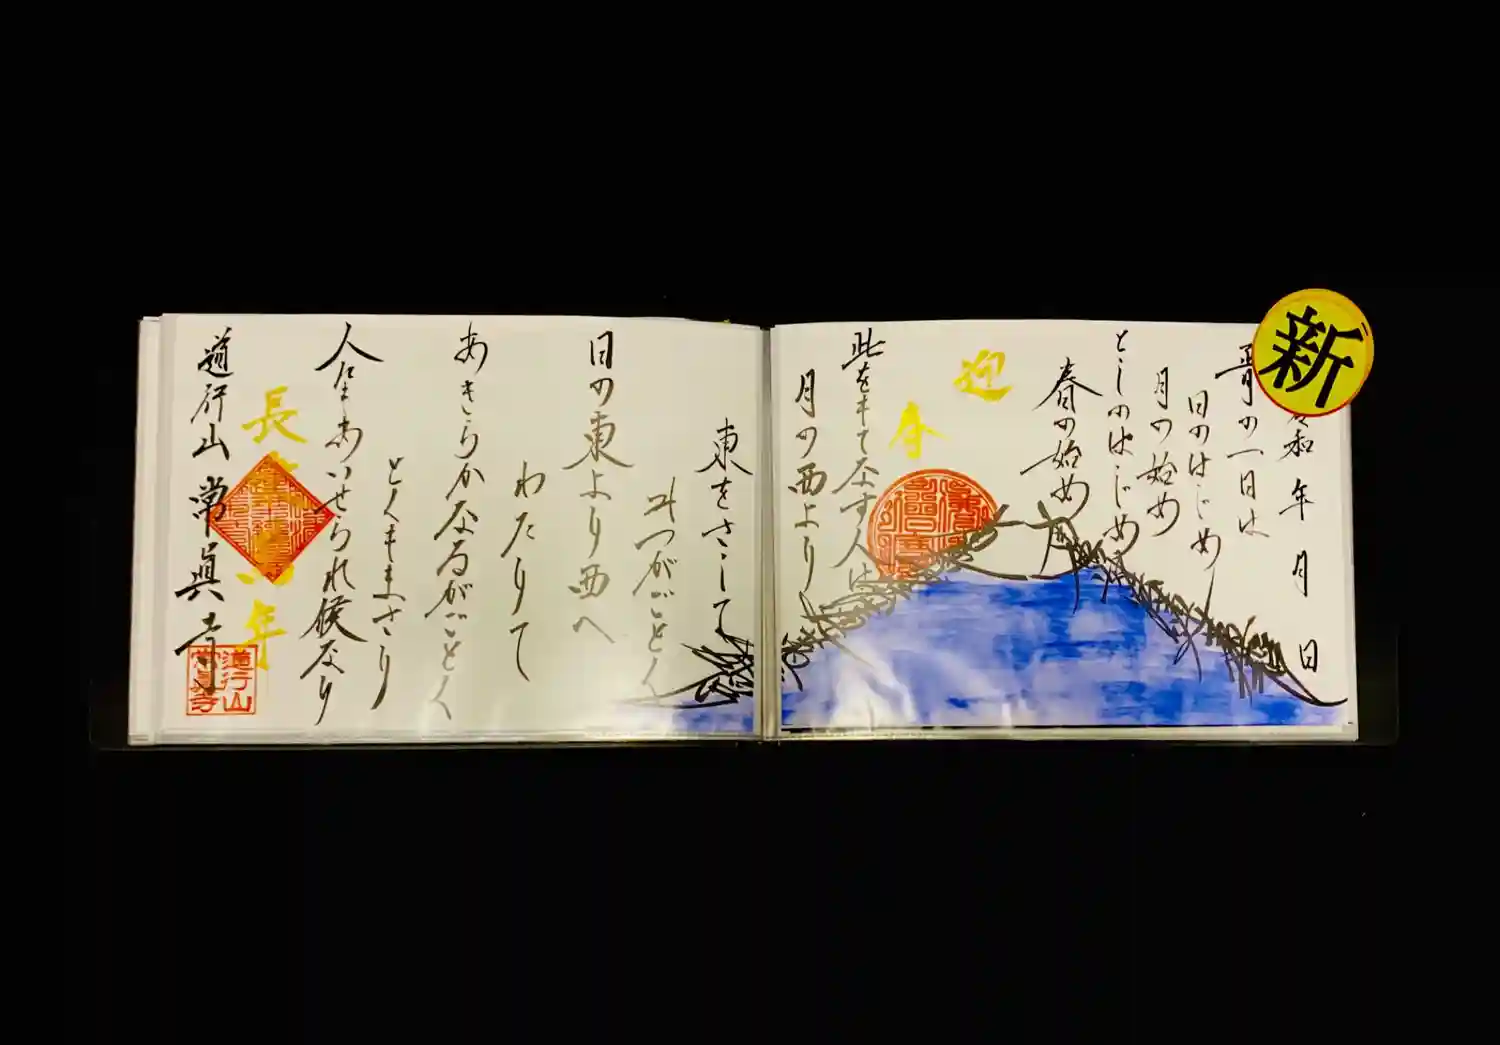 新
令和 年 月 日
正月の一日は
日のはじめ
月の始め
としのはじめ
春の始め
迎
春
此をもてなす人は
月の西より
東をさして
みつがごとく
日の東より西へ
わたりて
あきらかなるがごとく
とくもまさり
人にもあいせられ候なり
長
年
道行山 常眞寺
道行山
常眞寺